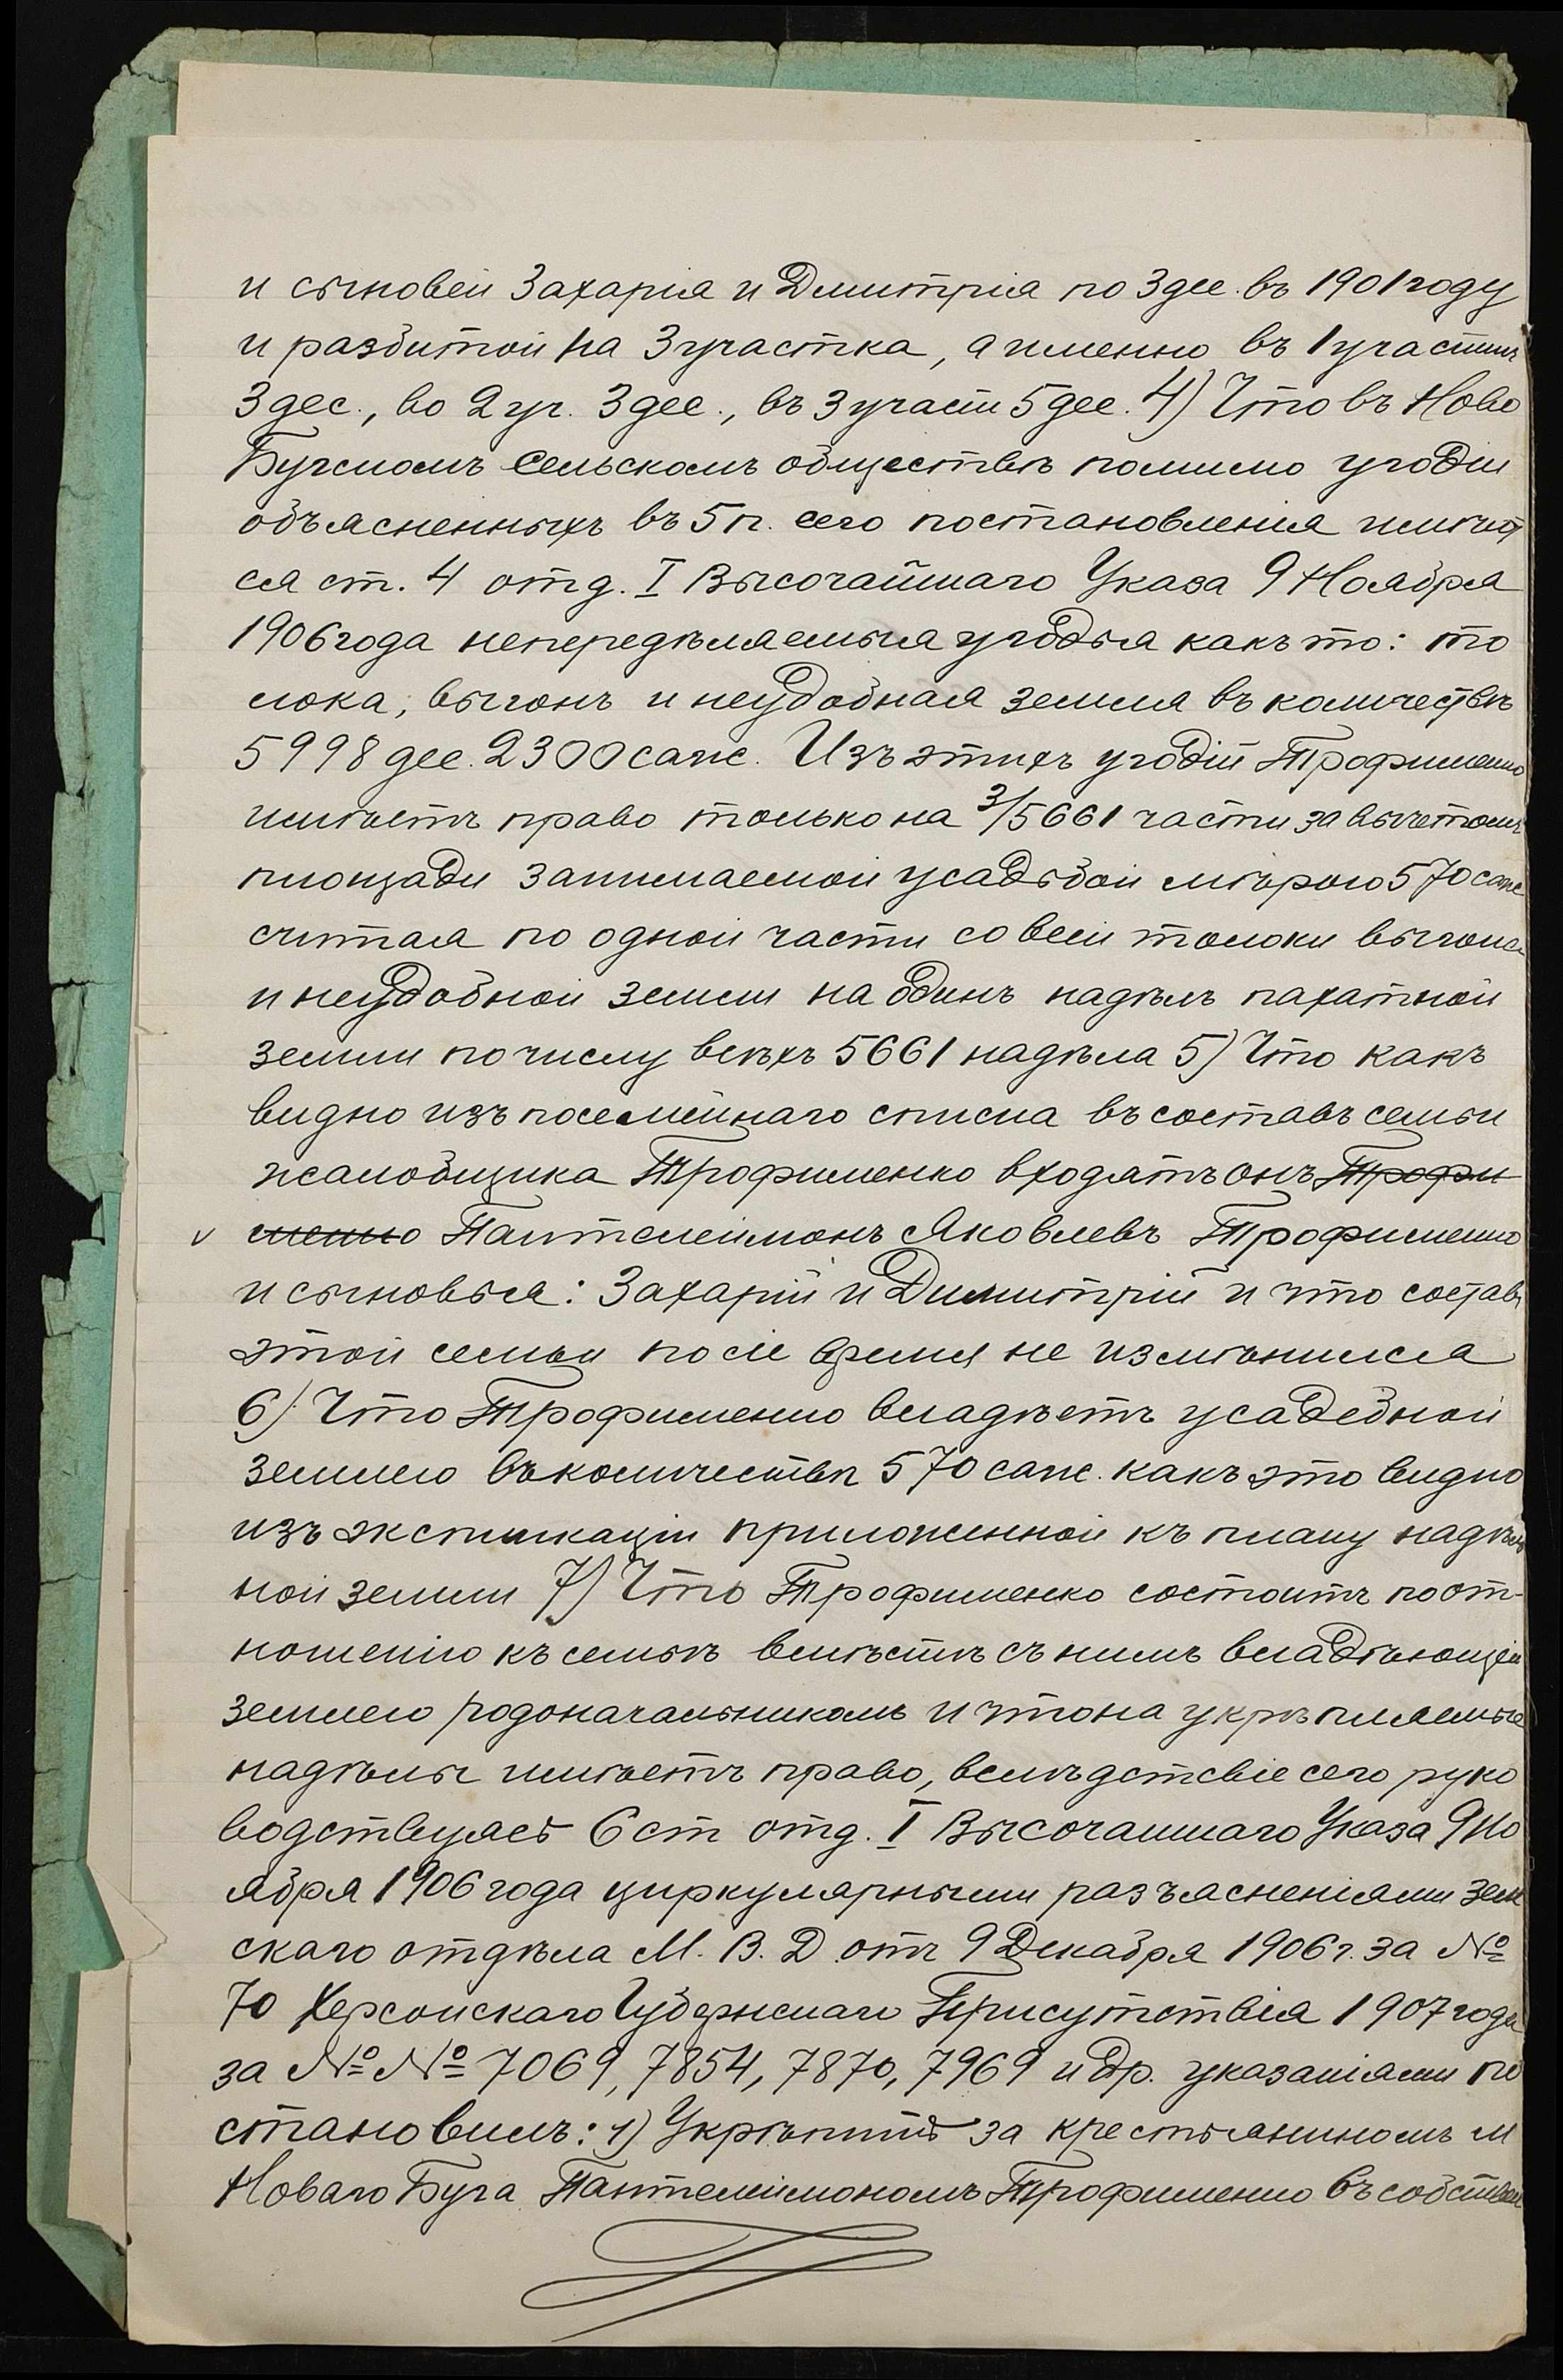 и сыновей Захарія и Дмитрія по 3 дес. въ 1901 году
и разбитой на 3 участка, а именно въ 1 участкѣ
3 дес., во 2 уч. 3 дес., въ 3 участ 5 дес. 4) Что въ Ново
Бугскомъ Сельскомъ обществѣ помимо угодій
объясненныхъ въ 5 п. сего постановленія имѣют
ся ст. 4 отд. I Высочайшаго Указа 9 Ноября
1906 года непередѣляемыя угодья какъ то: то
лока, выгонъ и неудобная земля въ количествѣ
5998 дес. 2300 саж. Изъ этихъ угодій Трофименко
имѣетъ право только на 3/5661 части за вычетомъ
площади занимаемой усадьбой мѣрою 570 саж
считая по одной части со всей толоки выгона
и неудобной земли на одинъ надѣлъ пахатной
земли по числу всѣхъ 5661 надѣла 5) Что какъ
видно изъ посемейнаго списка въ составъ семьи
жалобщика Трофименко входятъ онъ Трофи
v менко Пантелеймонъ Яковлевъ Трофименко
и сыновья: Захарій и Димитрій и что составъ
этой семьи после время не измѣнился
6) Что Трофименко владѣетъ усадебной
землею въ количествѣ 570 саж. какъ это видно
изъ экспликаціи приложенной къ плану надѣль
ной земли 7) Что Трофименко состоитъ по от-
ношенію къ семьѣ вмѣстѣ съ нимъ владѣющей
землею родоначальникомъ и что на укрѣпляемые
надѣлы имѣетъ право, вслѣдствіе сего руко
водствуясь 6 ст отд. I Высочаишаго Указа 9 Но
ября 1906 года циркулярными разъясненіями Зем
скаго отдѣла М. В. Д. отъ 9 Декабря 1906 г. за №
70 Херсонскаго Губернскаго Присутствія 1907 года
за № № 7069, 7854, 7870, 7969 и др. указаніями по
становилъ: 1) Укрѣпить за крестьяниномъ м
Новаго Буга Пантелеймономъ Трофименко въ собствен